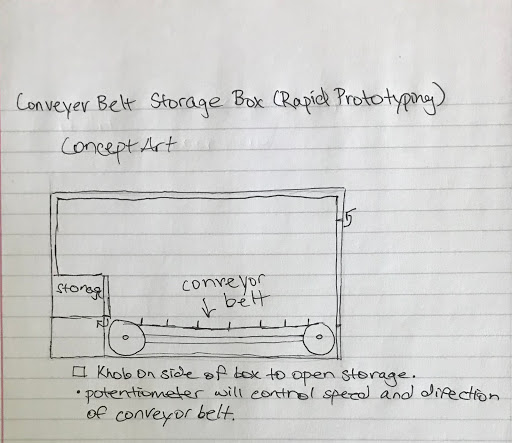 Conveyer Belt Storage Box (Rapid Prototyping)
Concept Art
Storage
conveyor
belt
□ Knob on side of box to open storage.
• potentiometer will control speed and direction
of conveyor belt.